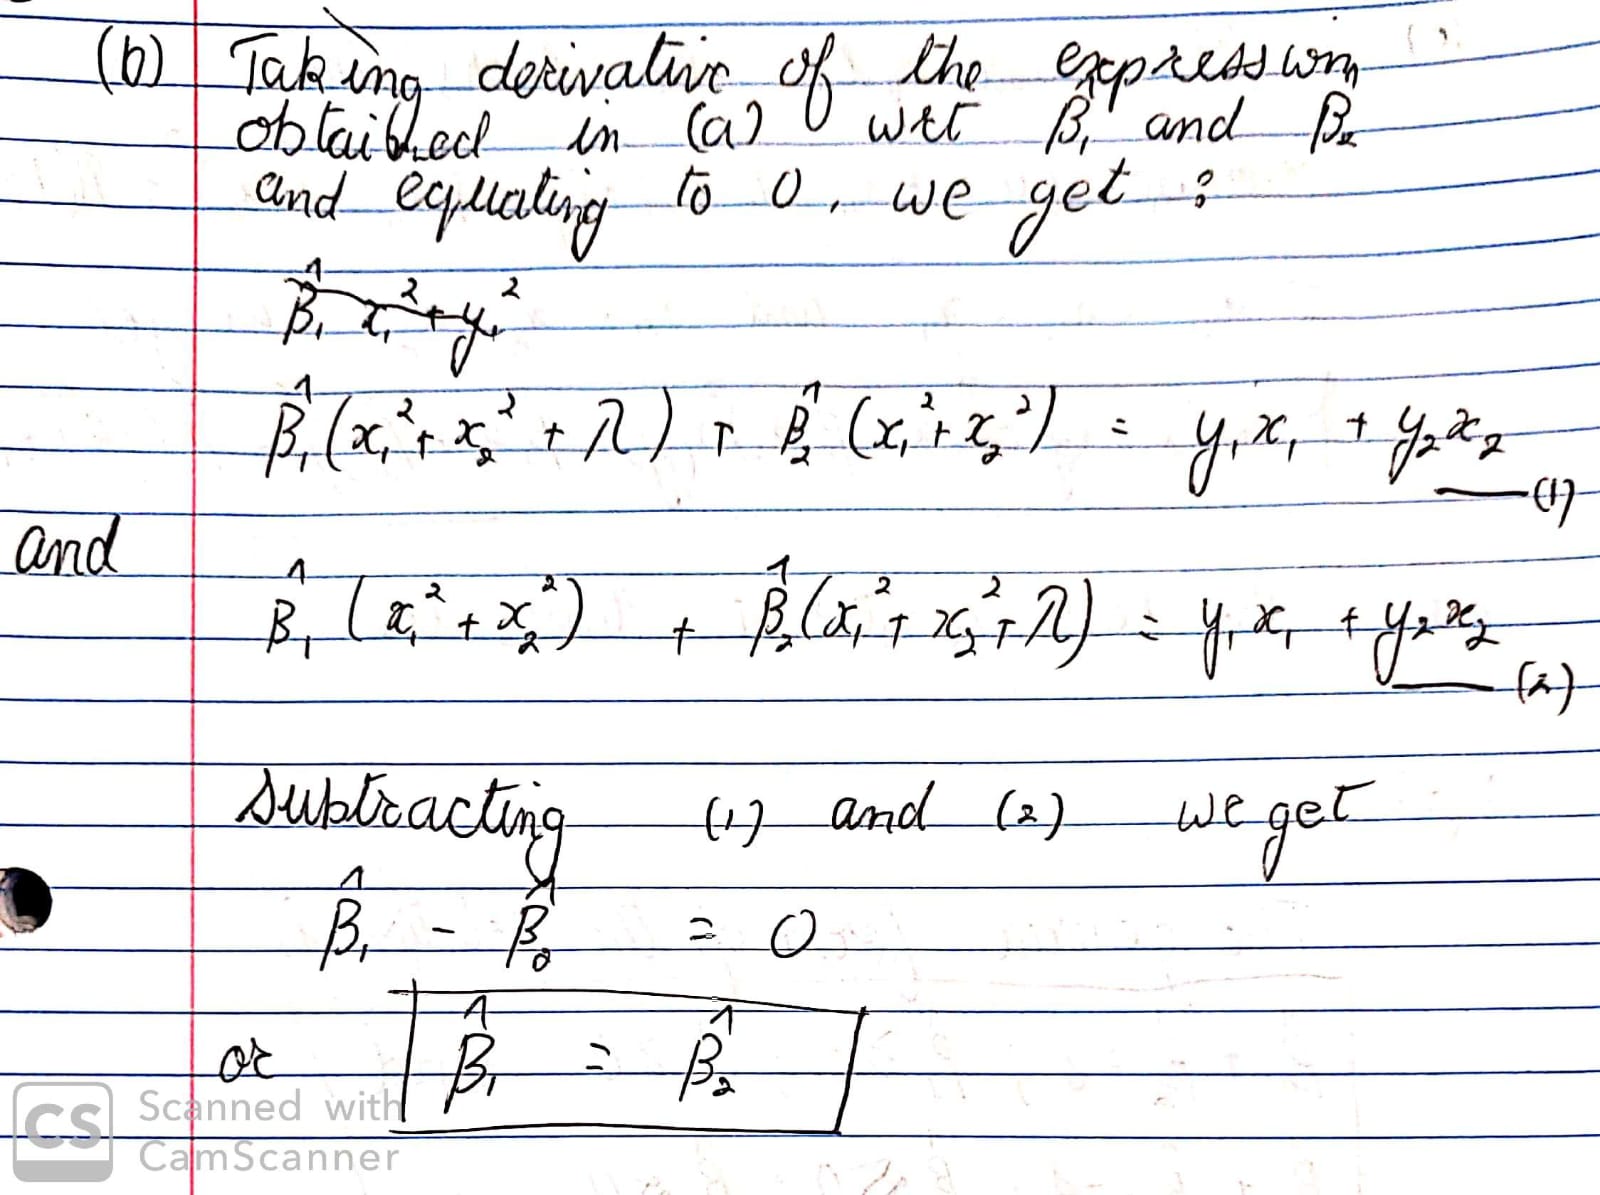 (b) Taking derivative of the expression
obtained in (a) wrt β̂₁ and β₂
and equating to 0, we get :
β̂₁ x₁² + y₁²
β̂₁ (x₁² + x₂² + λ) + β̂₂ (x₁² + x₂²) = y₁x₁ + y₂x₂
—(1)
and
β̂₁ (x₁² + x₂²) + β̂₂ (x₁² + x₂² + λ) = y₁x₁ + y₂x₂
—(2)
Subtracting (1) and (2) we get
β̂₁ - β̂₂ = 0
or β̂₁ = β̂₂
CS Scanned with
CamScanner